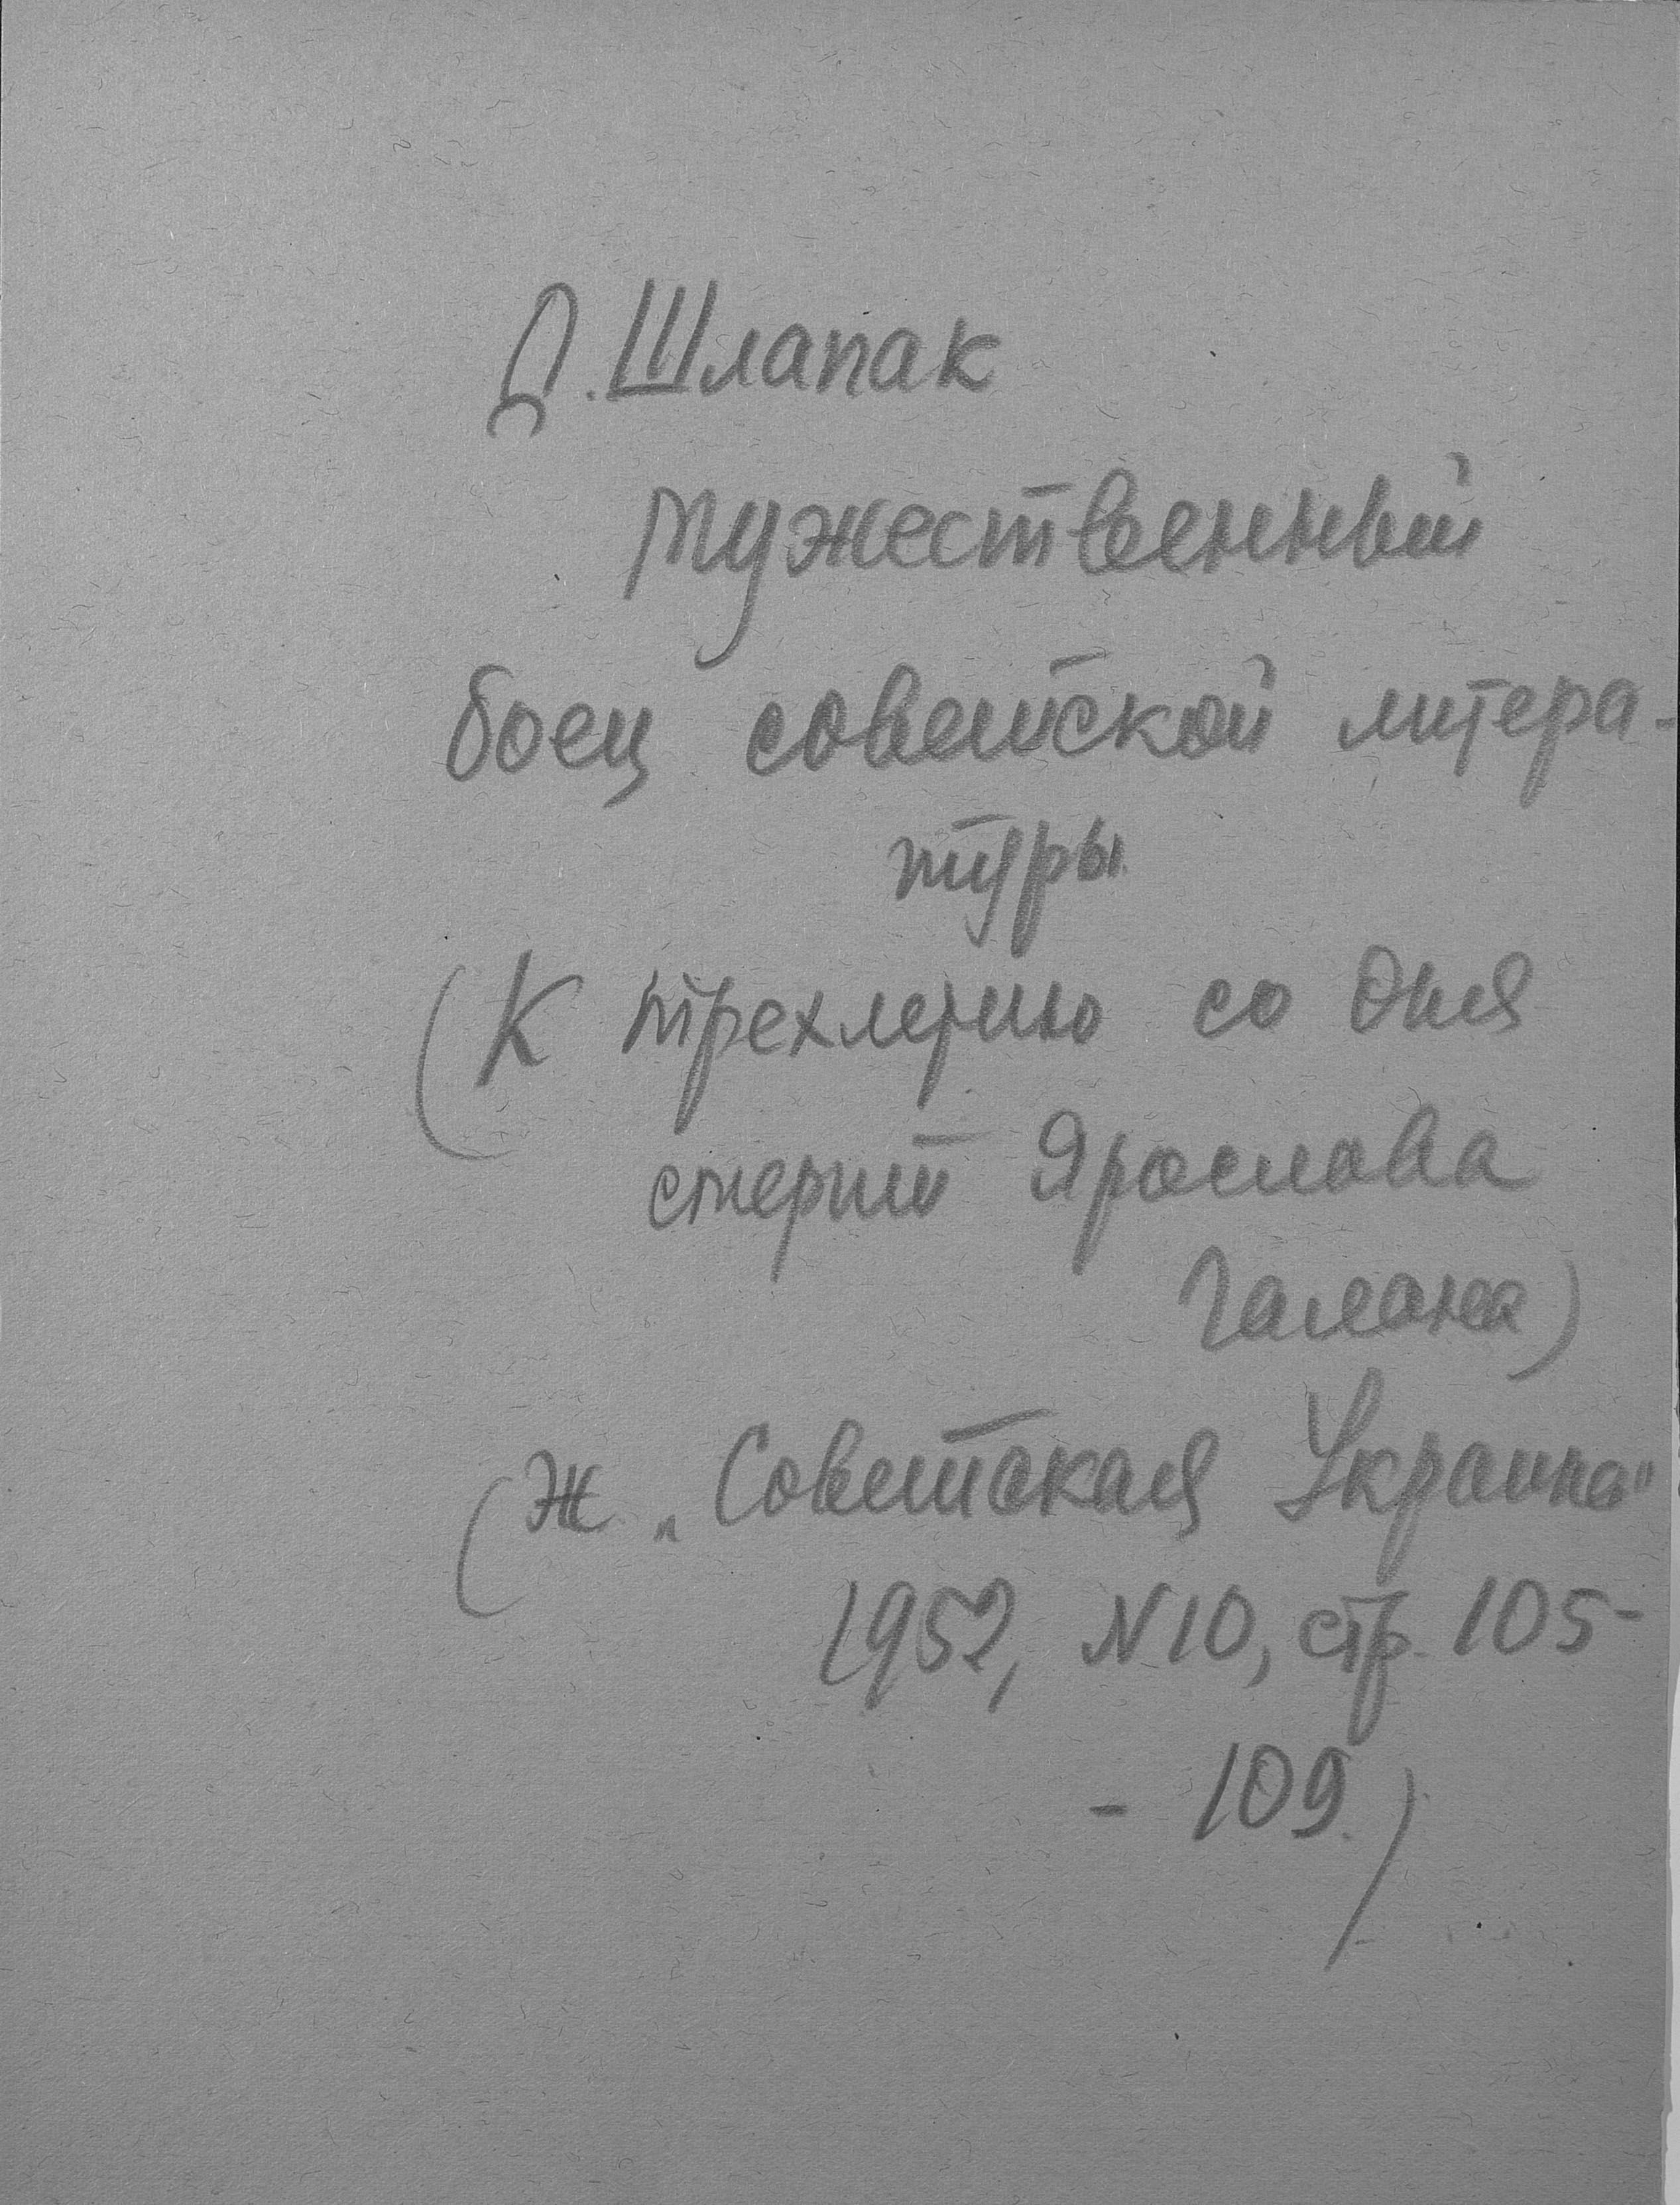 Д. Шлапак
Мужественный
боец советской литера-
туры
(К трехлетию со дня
смерти Ярослава
Галана)
(Ж. „Советская Украина"
1952, N10, стр. 105-
- 109.)